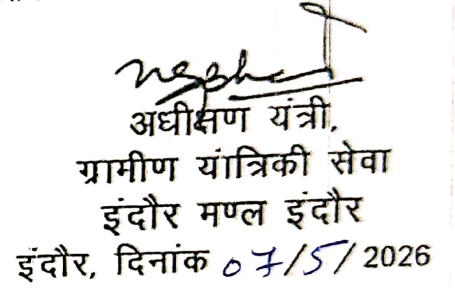 अधीक्षण यंत्री,
ग्रामीण यांत्रिकी सेवा
इंदौर मण्ल इंदौर
इंदौर, दिनांक 07/5/2026